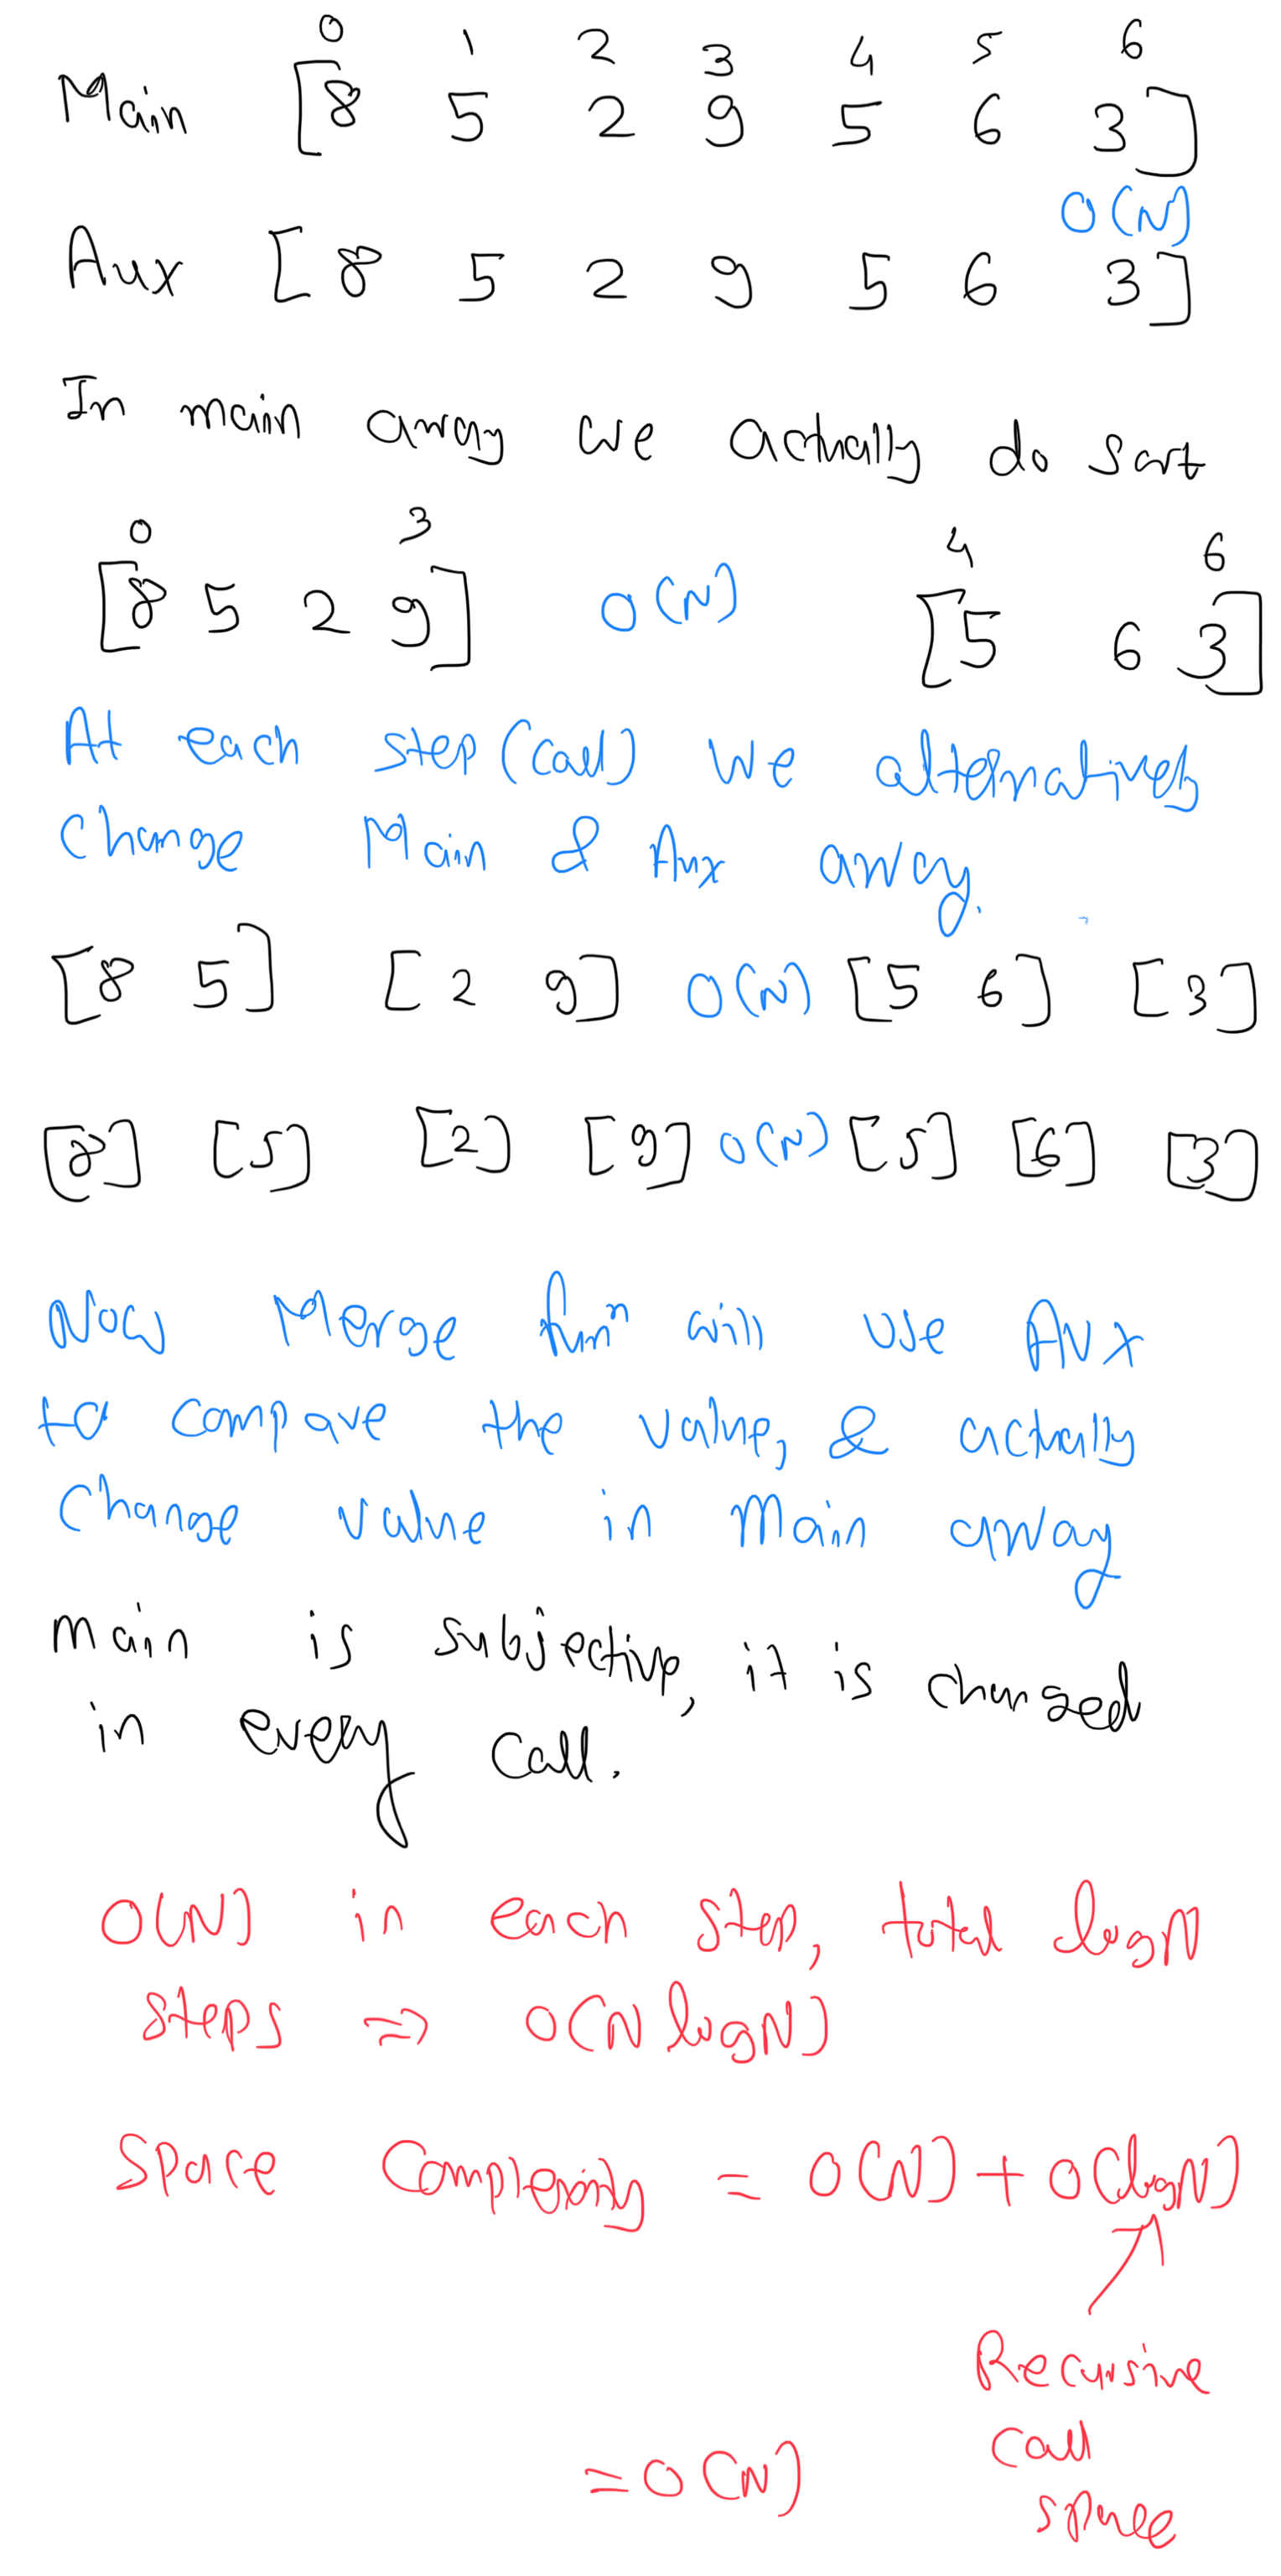 0 1 2 3 4 5 6
Main [8 5 2 9 5 6 3]
O(N)
Aux [8 5 2 9 5 6 3]
In main array we actually do sort
0 3 4 6
[8 5 2 9] O(N) [5 6 3]
At each step (call) we alternatively
change Main & Aux array.
[8 5] [2 9] O(N) [5 6] [3]
[8] [5] [2] [9] O(N) [5] [6] [3]
Now Merge funⁿ will use Aux
to compare the value, & actually
change value in main array
main is subjective, it is changed
in every call.
O(N) in each step, total logN
steps ⇒ O(N logN)
Space Complexity = O(N) + O(logN)
Recursive
call
space
= O(N)